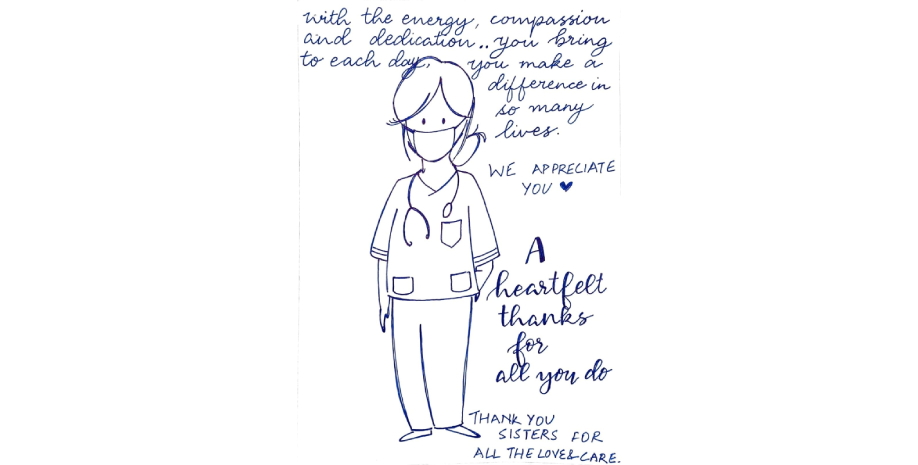 with the energy, compassion
and dedication.. you bring
to each day, you make a
difference in
so many
lives.
WE APPRECIATE
YOU ♥
A
heartfelt
thanks
for
all you do
THANK YOU
SISTERS FOR
ALL THE LOVE& CARE.